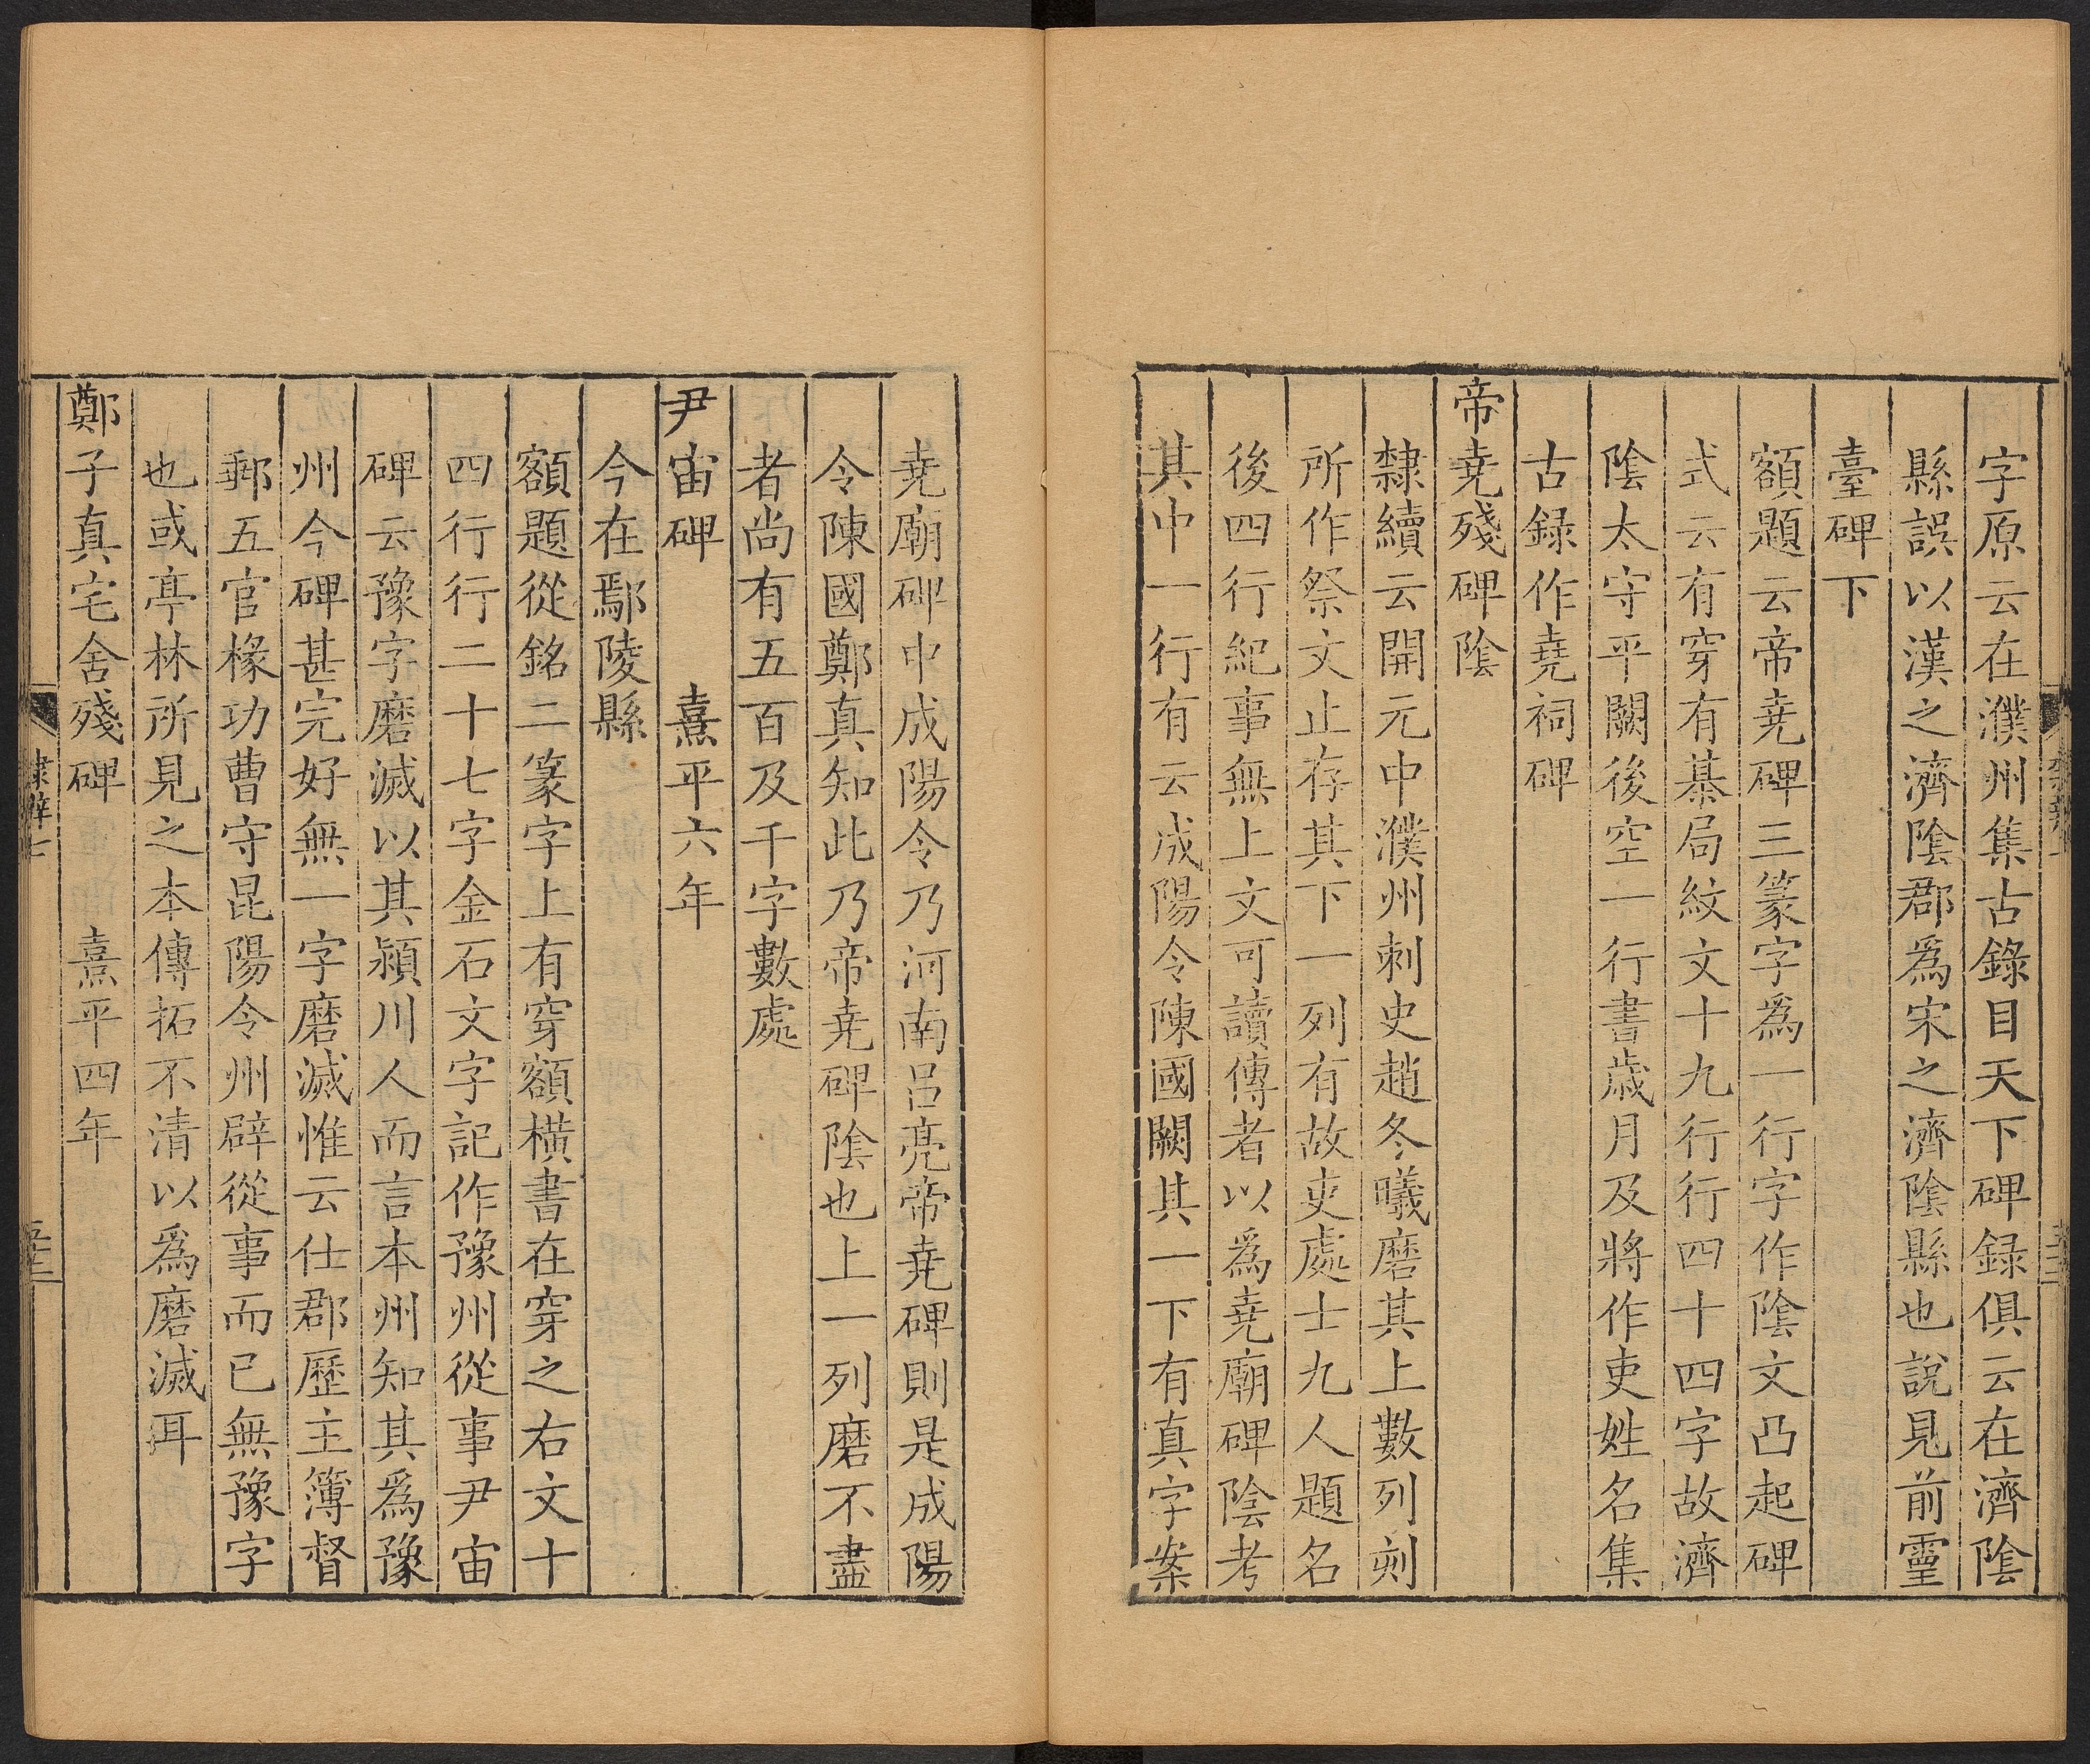 字原云在濮州集古錄目天下碑録俱云在濟陰
縣誤以漢之濟陰郡爲宋之濟陰縣也說見前靈
臺碑下
額題云帝堯碑三篆字爲一行字作陰文凸起碑
式云有穿有棊局紋文十九行行四十四字故濟
陰太守平闕後空一行書歲月及將作吏姓名集
古録作堯祠碑
帝堯殘碑陰
隸續云開元中濮州刺史趙冬曦磨其上數列刻
所作祭文止存其下一列有故吏處士九人題名
後四行紀事無上文可讀傳者以爲堯廟碑陰考
其中一行有云成陽令陳國闕其一下有真字案
堯廟碑中成陽令乃河南呂亮帝堯碑則是成陽
令陳國鄭真知此乃帝堯碑陰也上一列磨不盡
者尚有五百及千字數處
尹宙碑 熹平六年
今在鄢陵縣
額題從銘二篆字上有穿額橫書在穿之右文十
四行行二十七字金石文字記作豫州從事尹宙
碑云豫字磨滅以其潁川人而言本州知其爲豫
州今碑甚完好無一字磨滅惟云仕郡歷主簿督
郵五官椽功曹守昆陽令州辟從事而已無豫字
也或亭林所見之本傳拓不清以爲磨滅耳
鄭子真宅舍殘碑 熹平四年